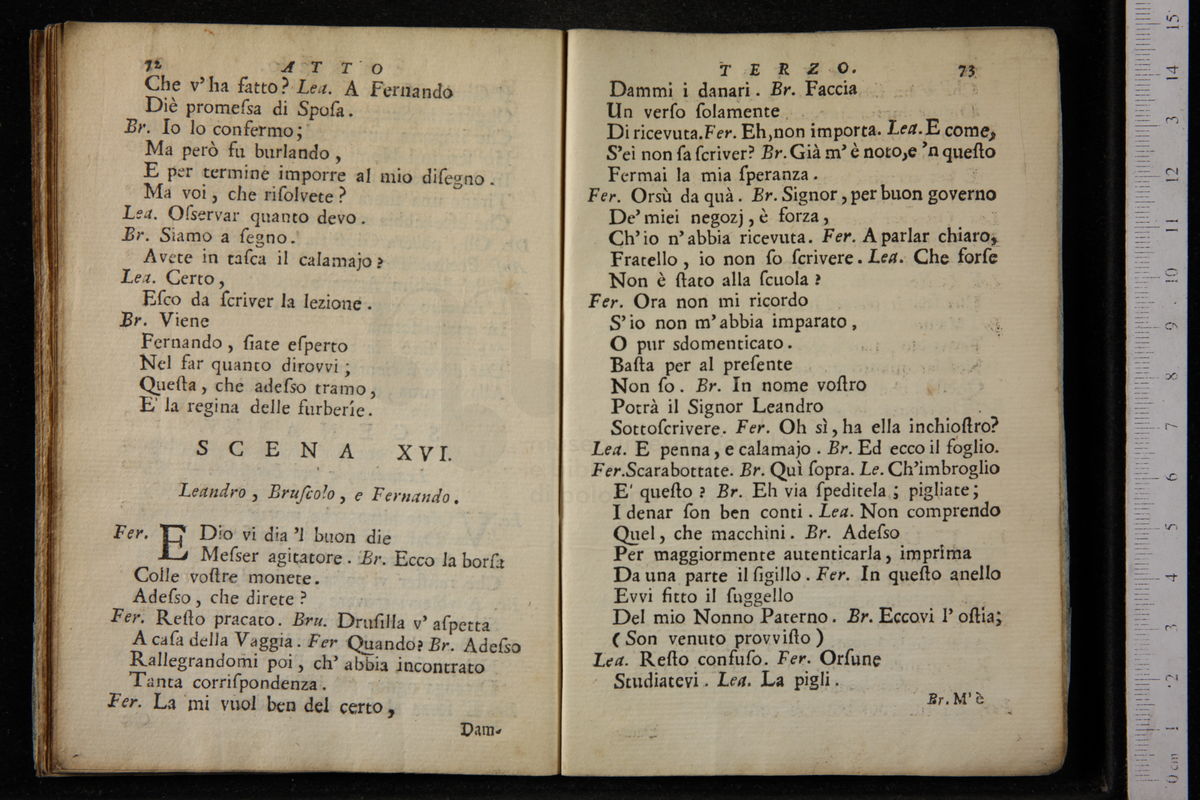 72 ATTO
Che v'ha fatto? Lea. A Fernando
Diè promeſsa di Spoſa.
Br. Io lo confermo;
Ma però fu burlando,
E per termine imporre al mio diſegno.
Ma voi, che riſolvete?
Lea. Oſservar quanto devo.
Br. Siamo a ſegno.
Avete in taſca il calamajo?
Lea. Certo,
Eſco da ſcriver la lezione.
Br. Viene
Fernando, ſiate eſperto
Nel far quanto dirovvi;
Queſta, che adeſso tramo,
E' la regina delle furberíe.
SCENA XVI.
Leandro, Bruſcolo, e Fernando.
Fer. E Dio vi dia 'l buon die
Meſser agitatore. Br. Ecco la borſa
Colle voſtre monete.
Adeſso, che direte?
Fer. Reſto pracato. Bru. Druſilla v' aſpetta
A caſa della Vaggia. Fer Quando? Br. Adeſso
Rallegrandomi poi, ch' abbia incontrato
Tanta corriſpondenza.
Fer. La mi vuol ben del certo,
Dam-
TERZO. 73
Dammi i danari. Br. Faccia
Un verſo ſolamente
Di ricevuta. Fer. Eh, non importa. Lea. E come,
S'ei non ſa ſcriver? Br. Già m' è noto, e 'n queſto
Fermai la mia ſperanza.
Fer. Orsù da quà. Br. Signor, per buon governo
De' miei negozj, è forza,
Ch'io n'abbia ricevuta. Fer. A parlar chiaro,
Fratello, io non ſo ſcrivere. Lea. Che forſe
Non è ſtato alla ſcuola?
Fer. Ora non mi ricordo
S'io non m'abbia imparato,
O pur sdomenticato.
Baſta per al preſente
Non ſo. Br. In nome voſtro
Potrà il Signor Leandro
Sottoſcrivere. Fer. Oh sì, ha ella inchioſtro?
Lea. E penna, e calamajo. Br. Ed ecco il foglio.
Fer. Scarabottate. Br. Quì ſopra. Le. Ch'imbroglio
E' queſto? Br. Eh via ſpeditela; pigliate;
I denar ſon ben conti. Lea. Non comprendo
Quel, che macchini. Br. Adeſso
Per maggiormente autenticarla, imprima
Da una parte il ſigillo. Fer. In queſto anello
Evvi fitto il ſuggello
Del mio Nonno Paterno. Br. Eccovi l' oſtia;
(Son venuto provviſto)
Lea. Reſto confuſo. Fer. Orſune
Studiatevi. Lea. La pigli.
Br. M' è
0 cm 1 2 3 4 5 6 7 8 9 10 11 12 13 14 15